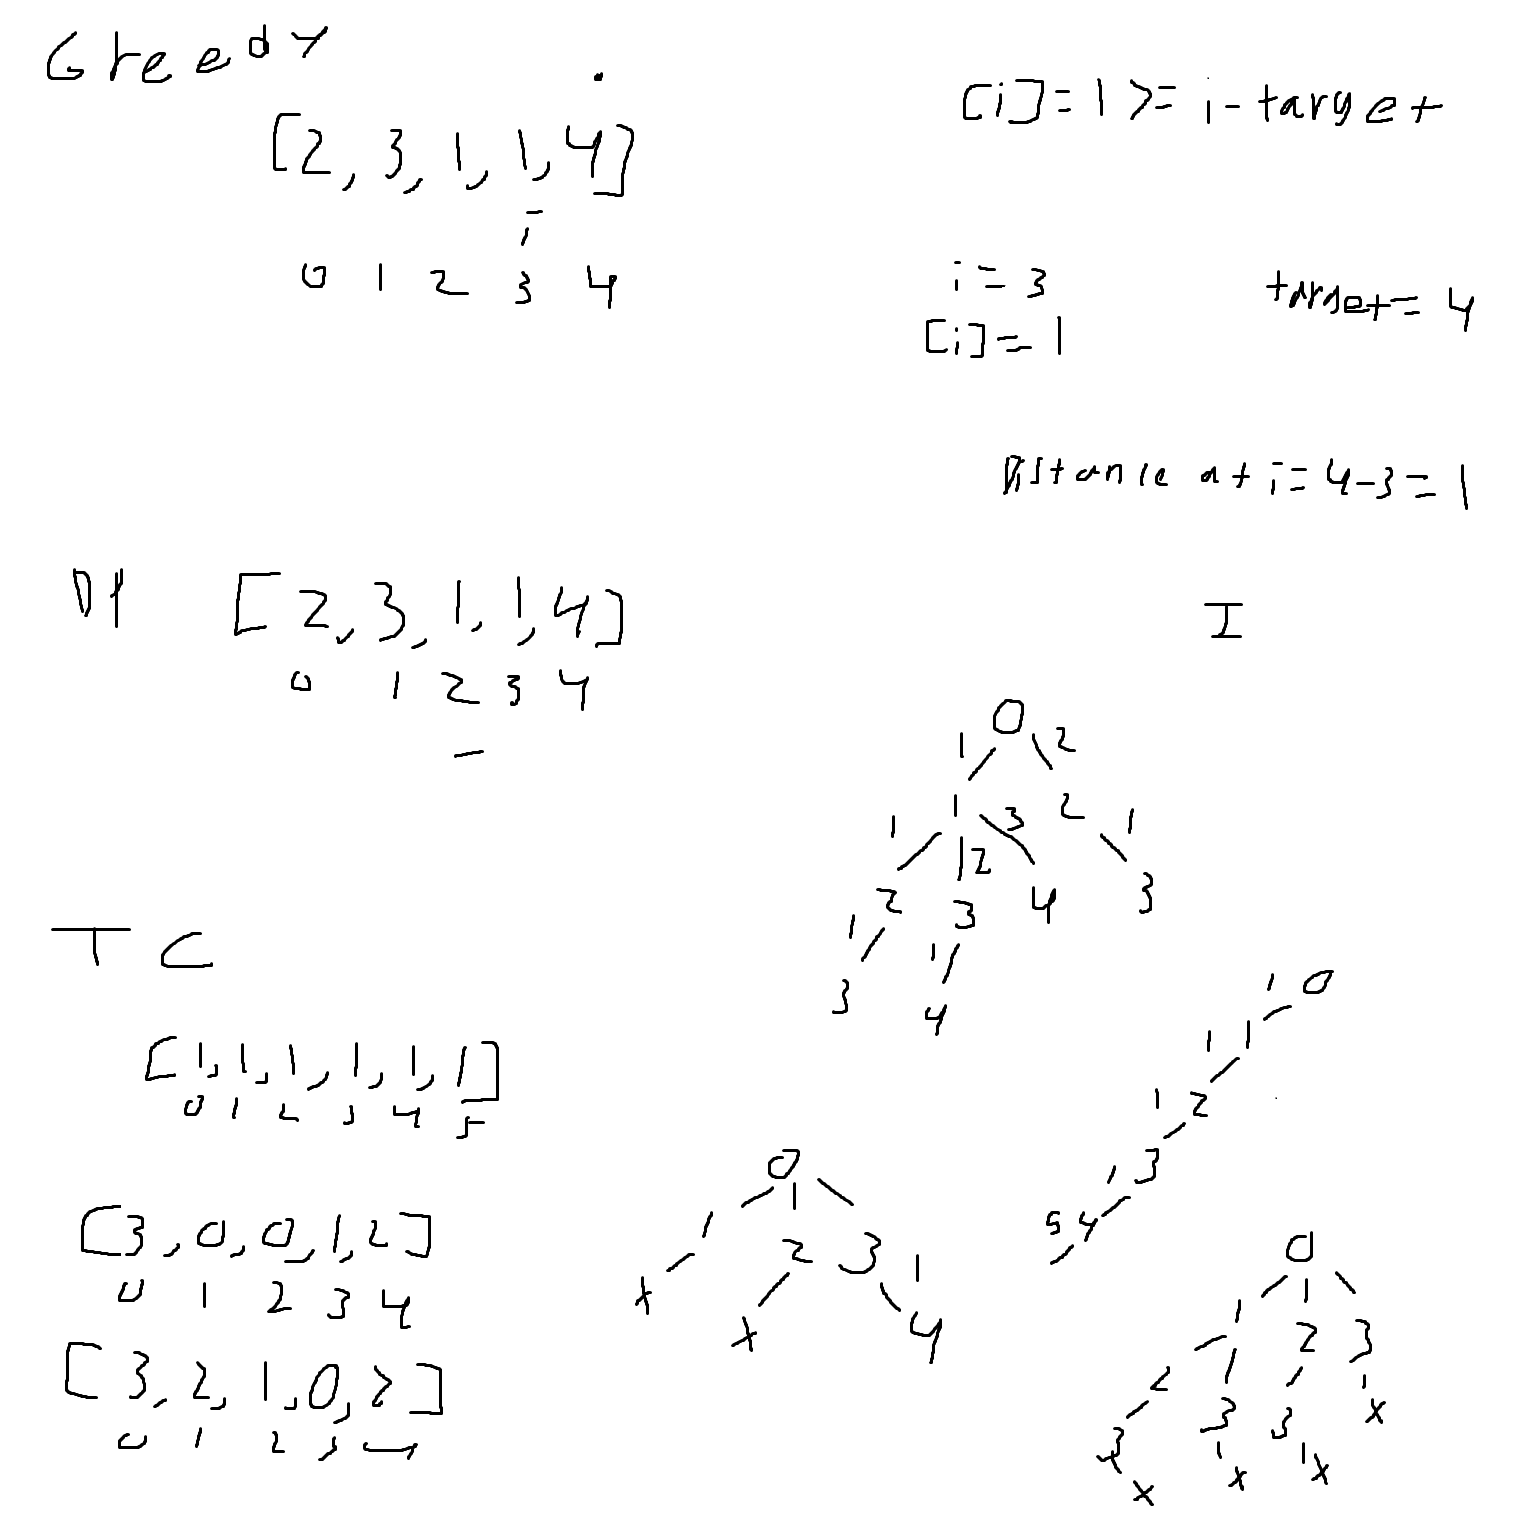 Greedy
[2, 3, 1, 1, 4]
i
0 1 2 3 4
[i]=1 >= i-target
i = 3
target = 4
[i] = 1
Distance at i = 4-3 = 1
DP [2, 3, 1, 1, 4]
0 1 2 3 4
I
0
1 2
1 2
1 2 3 1
2 3 4 3
1 1
3 4
TC
[1, 1, 1, 1, 1, 1]
0 1 2 3 4 5
1 0
1 1
1 2
1 3
5 4
[3, 0, 0, 1, 2]
0 1 2 3 4
0
1 2 3 1
x x 4
[3, 2, 1, 0, 2]
0 1 2 3 4
0
1 2 3
2 3 3 x
3 x x
x